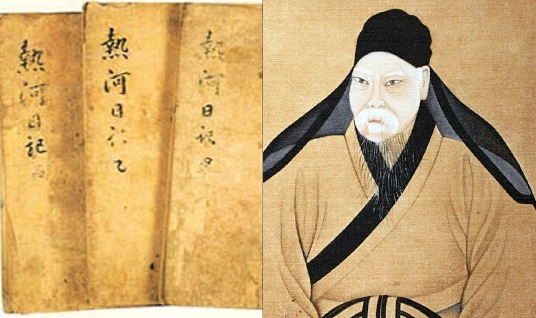 熱河日記
熱河日記乙
熱河日記